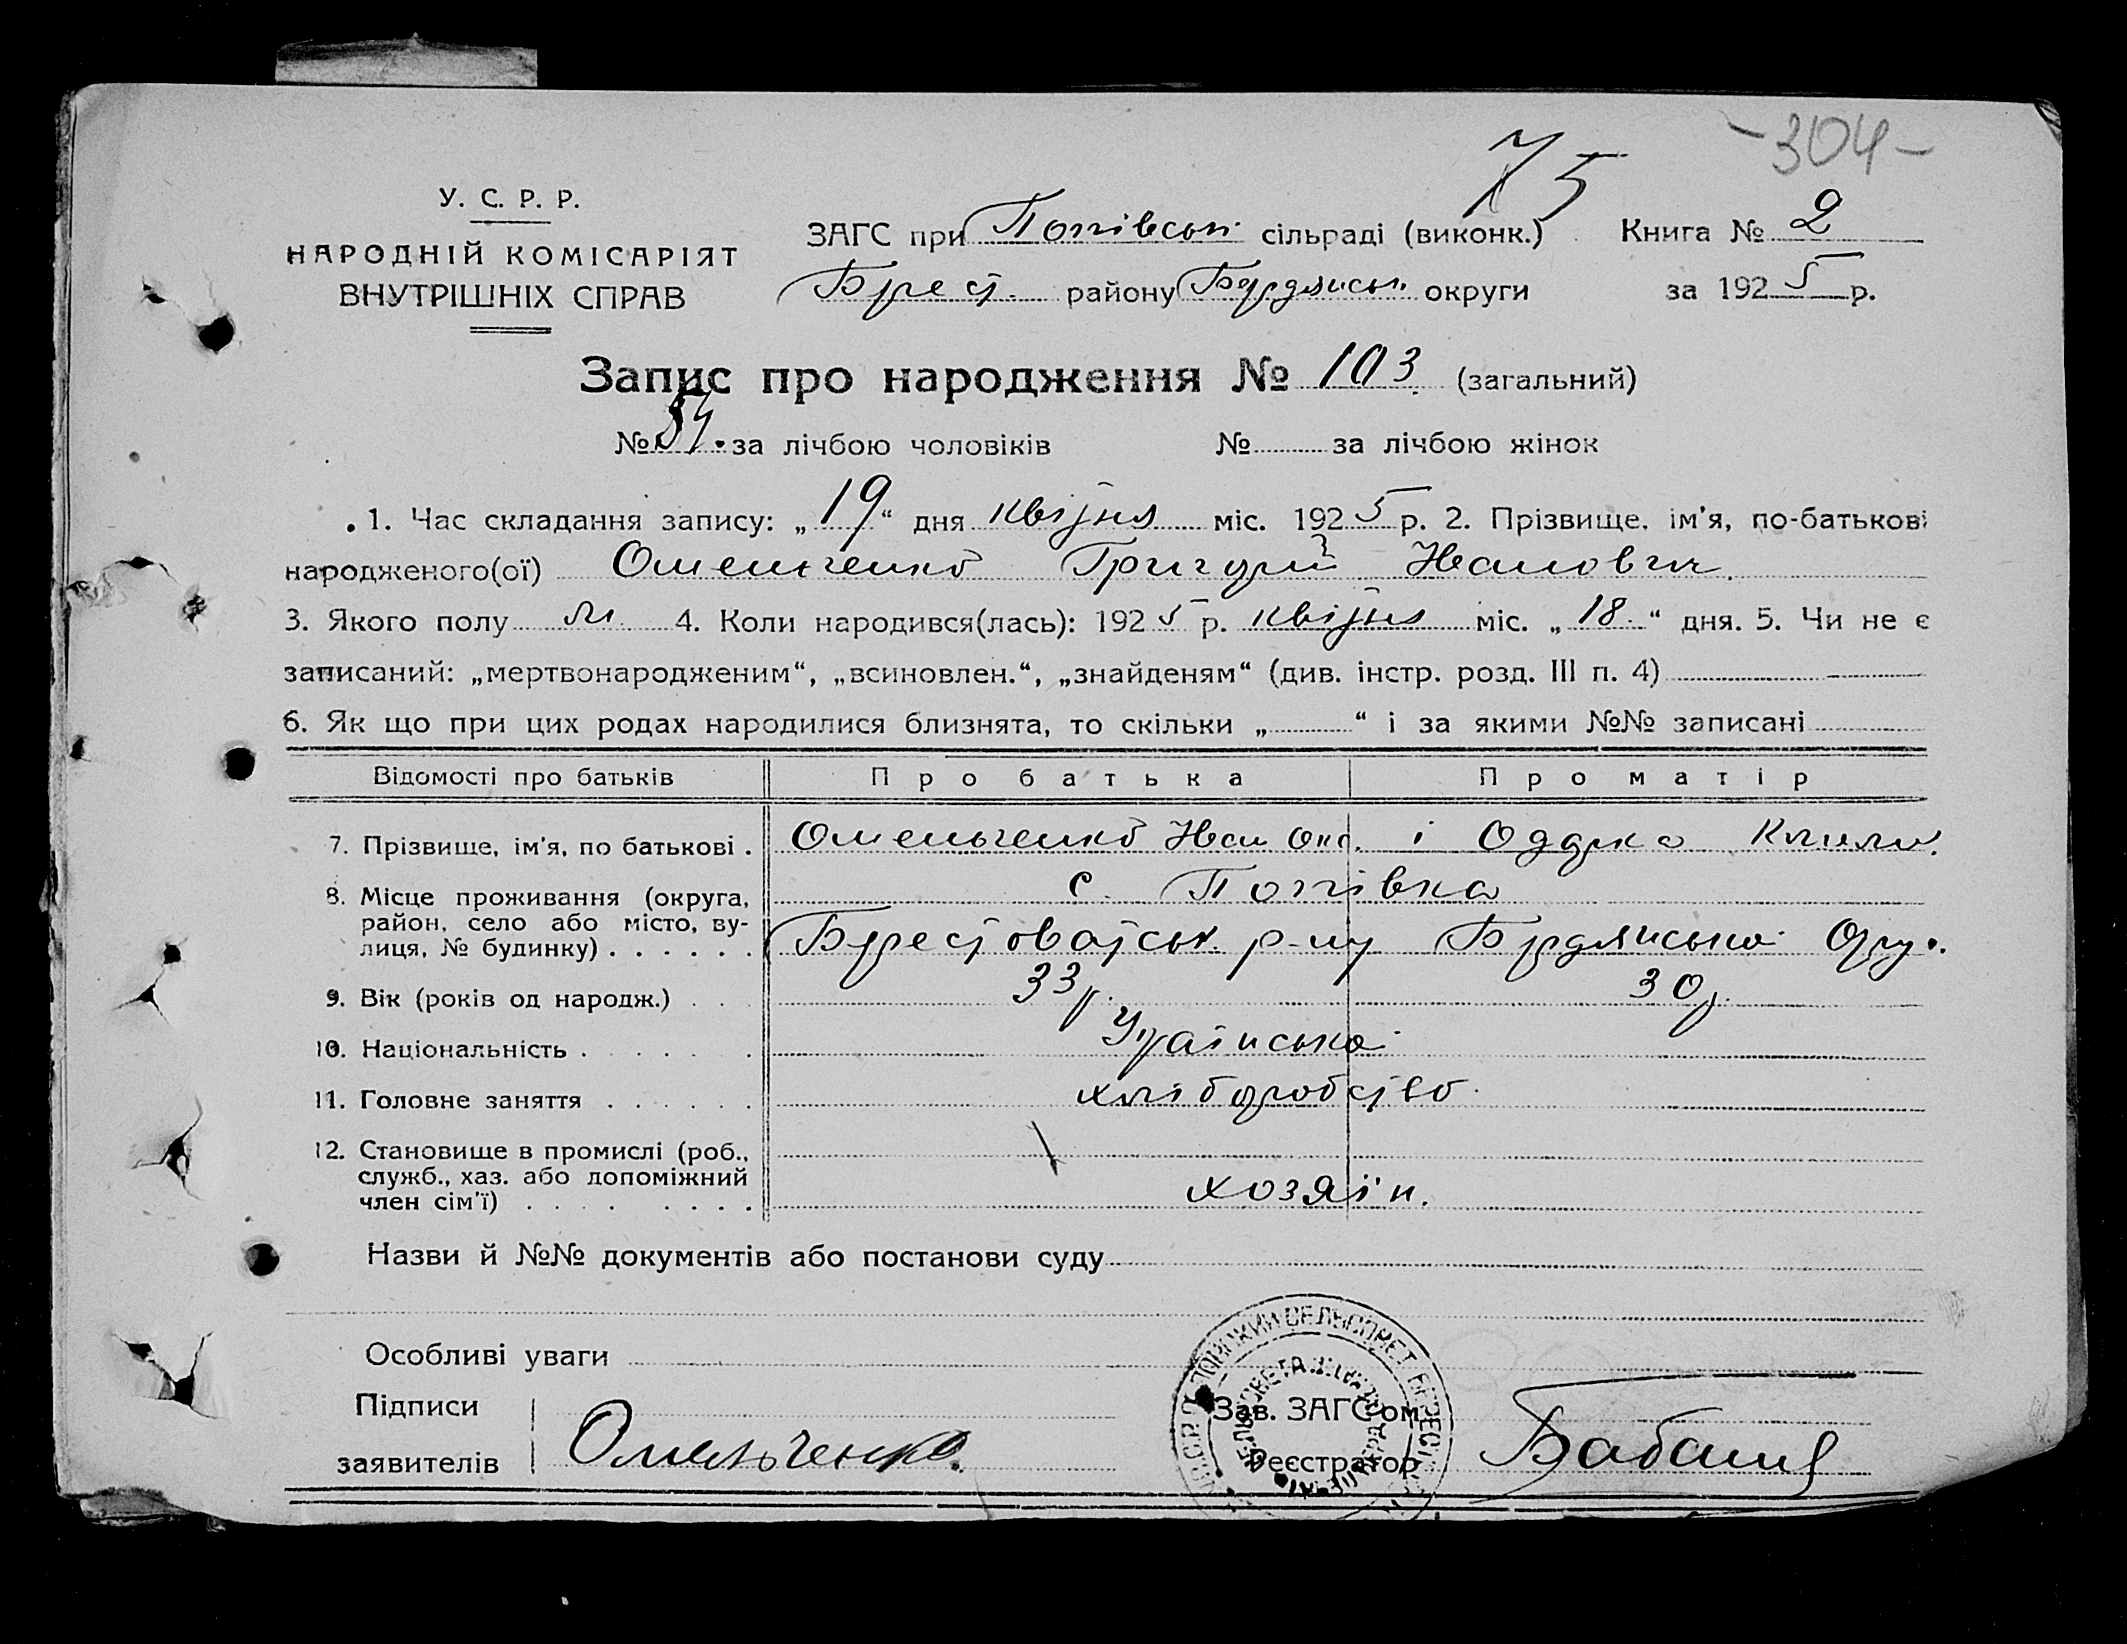 -304-
75
У. С. Р. Р.
НАРОДНІЙ КОМІСАРІЯТ
ВНУТРІШНІХ СПРАВ
ЗАГС при Попівськ. сільраді (виконк.) Книга № 2
Брест. району Бердянськ. округи за 1925 р.
Запис про народження № 103. (загальний)
№ 54. за лічбою чоловіків № за лічбою жінок
1. Час складання запису: „19“ дня квітня міс. 1925 р. 2. Прізвище, ім'я, по-батькові
народженого(ої) Омельченко Григорій Иванович
3. Якого полу м. 4. Коли народився(лась): 1925 р. квітня міс. „18.“ дня. 5. Чи не є
записаний: „мертвонародженим“, „всиновлен.“, „знайденям“ (див. інстр. розд. III п. 4)
6. Як що при цих родах народилися близнята, то скільки „ “ і за якими №№ записані
Відомості про батьків Про батька Про матір
7. Прізвище, ім'я, по батькові . Омельченко Иван і Клим.
8. Місце проживання (округа, с. Попівка
район, село або місто, ву-
лиця, № будинку) . . . . . . Берестоватськ. р-ну Бердянської Окру.
9. Вік (років од народж.) . . . 33 р. 30 р.
10. Національність . . . . . Українська
11. Головне заняття . . . . . . хліборобство.
12. Становище в промислі (роб.,
служб., хаз. або допоміжний
член сім'ї) . . . . . . . . хозяїн.
Назви й №№ документів або постанови суду
Особливі уваги
Підписи
заявителів Омельченко.
Зав. ЗАГС'ом
Реєстратор